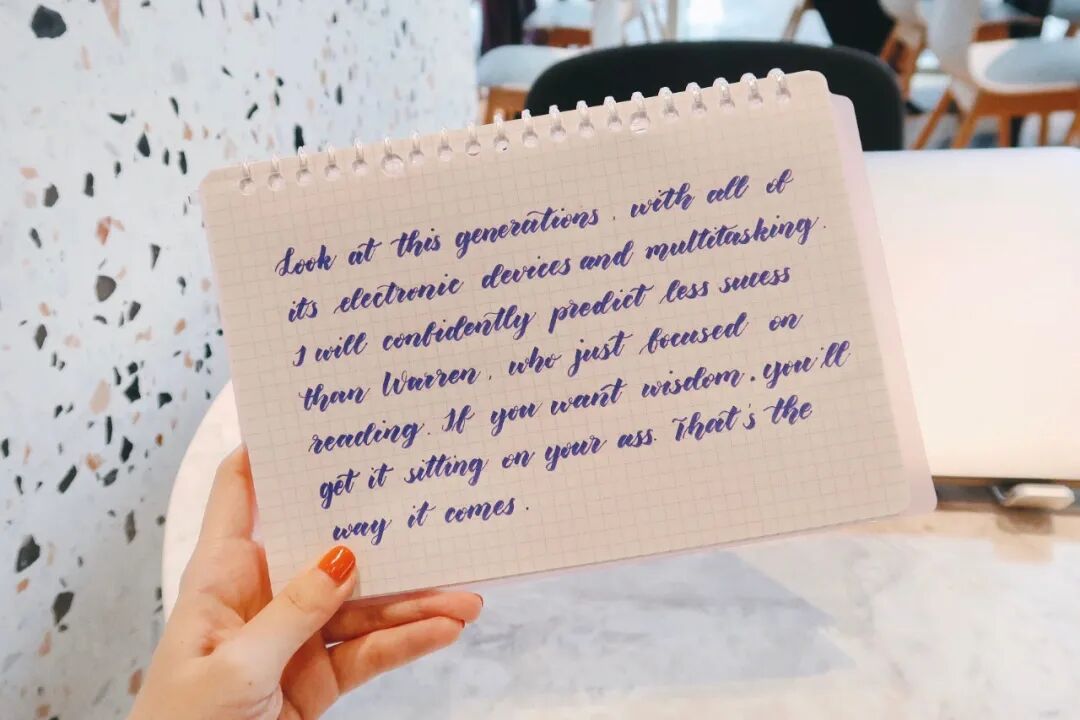 Look at this generations, with all of
its electronic devices and multitasking.
I will confidently predict less sucess
than Warren, who just focused on
reading. If you want wisdom. you'll
get it sitting on your ass. That's the
way it comes.